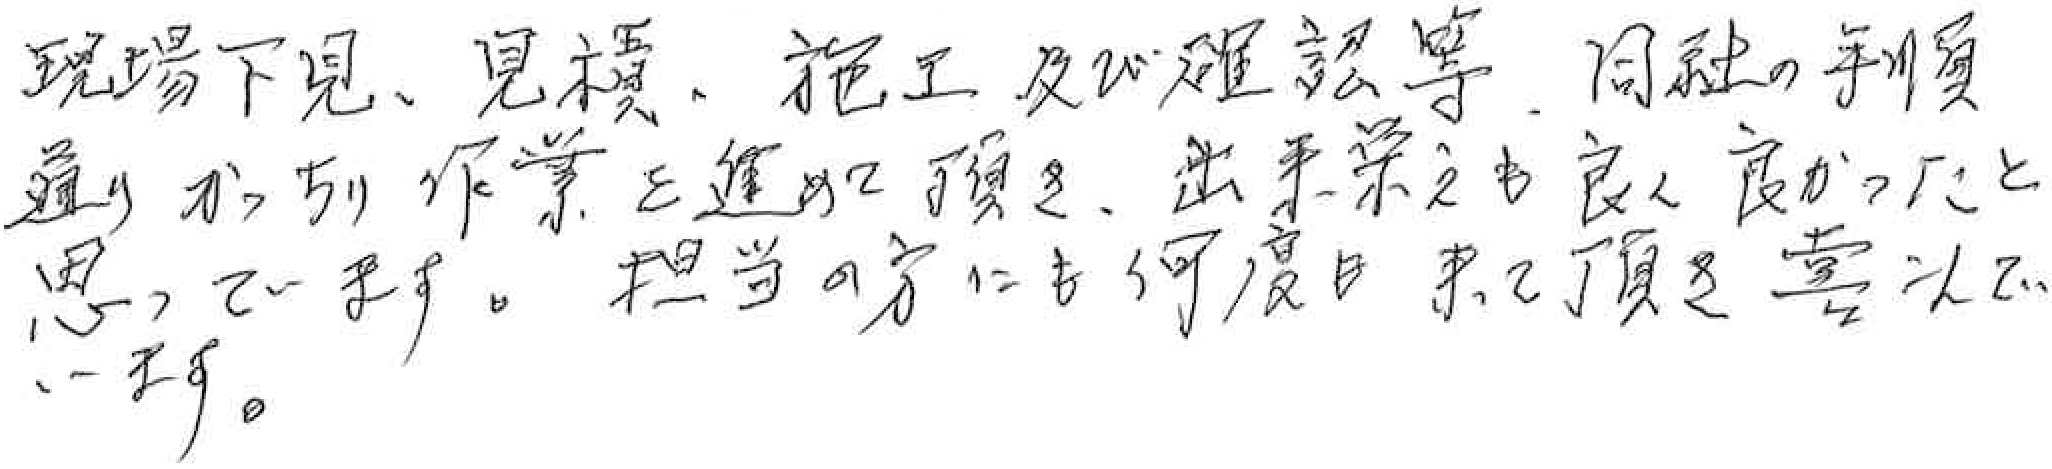 現場下見、見積、施工及び確認等、同社の手順
通りがっちり作業を進めて頂き、出来栄えも良く良かったと
思っています。担当の方にも何度も来て頂き喜んで
います。